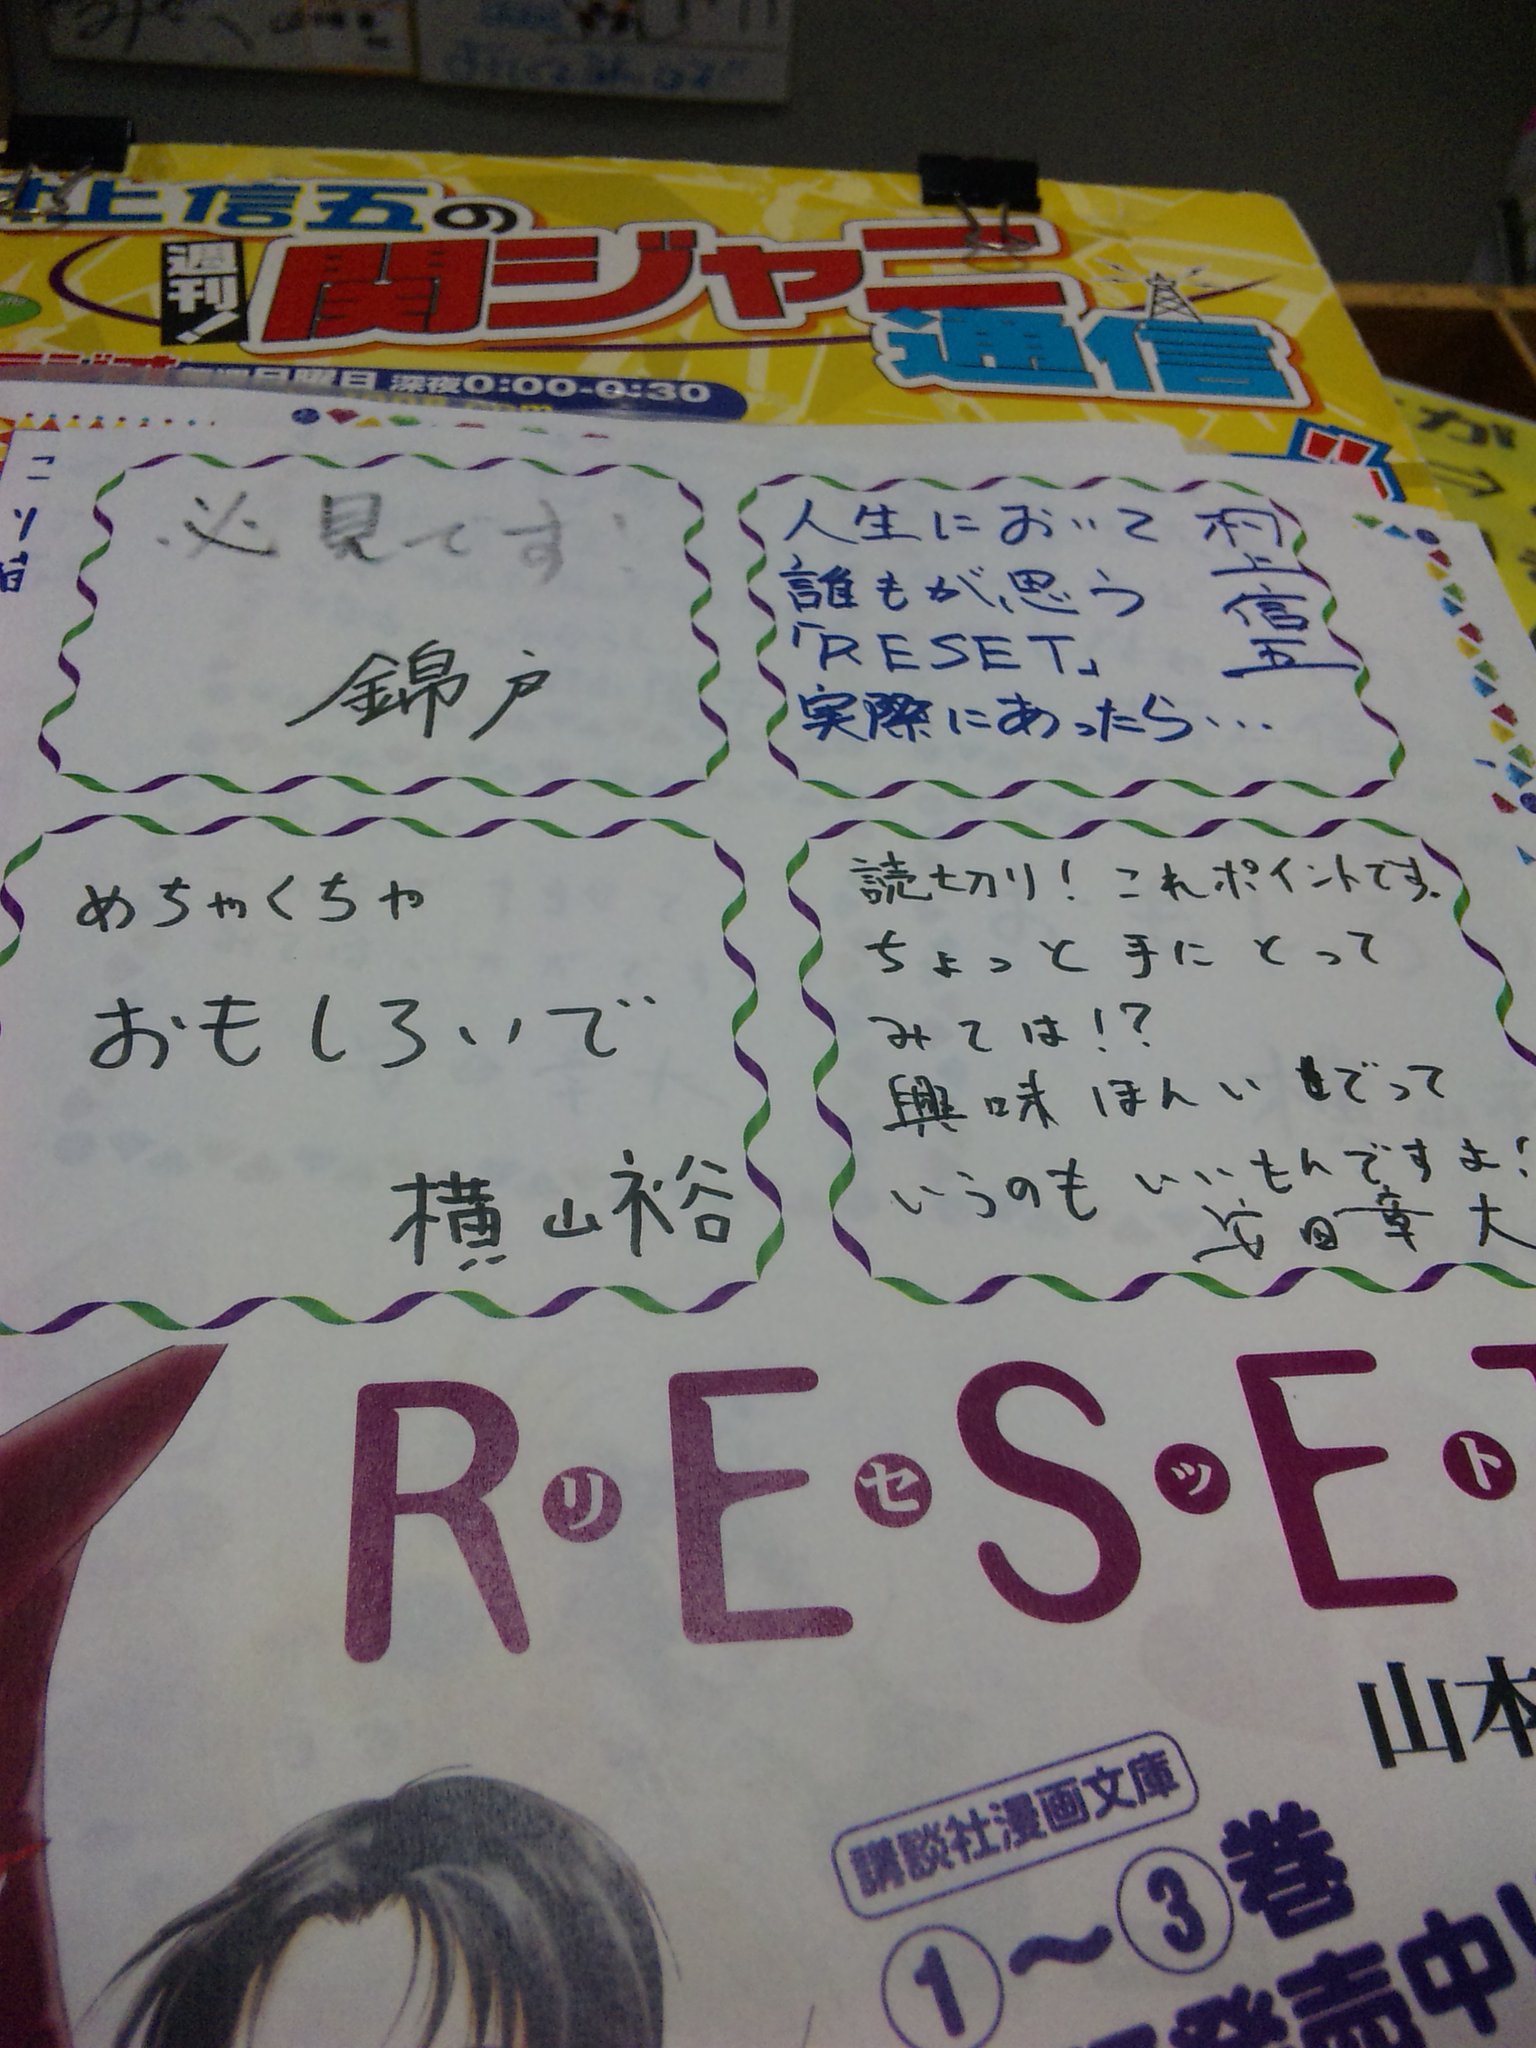 上信五の
週刊!
関ジャニ
通信
日曜日 深夜0:00-0:30
必見です
錦戸
人生において
誰もが、思う
「RESET」
実際にあったら・・・
村上
信五
めちゃくちゃ
おもしろいで
横山裕
読切り! これポイントです。
ちょっと手にとって
みては!?
興味ほんいでって
いうのもいいもんですよ!
安田章大
RESET
リセット
山本
講談社漫画文庫
①〜③巻
発売中!